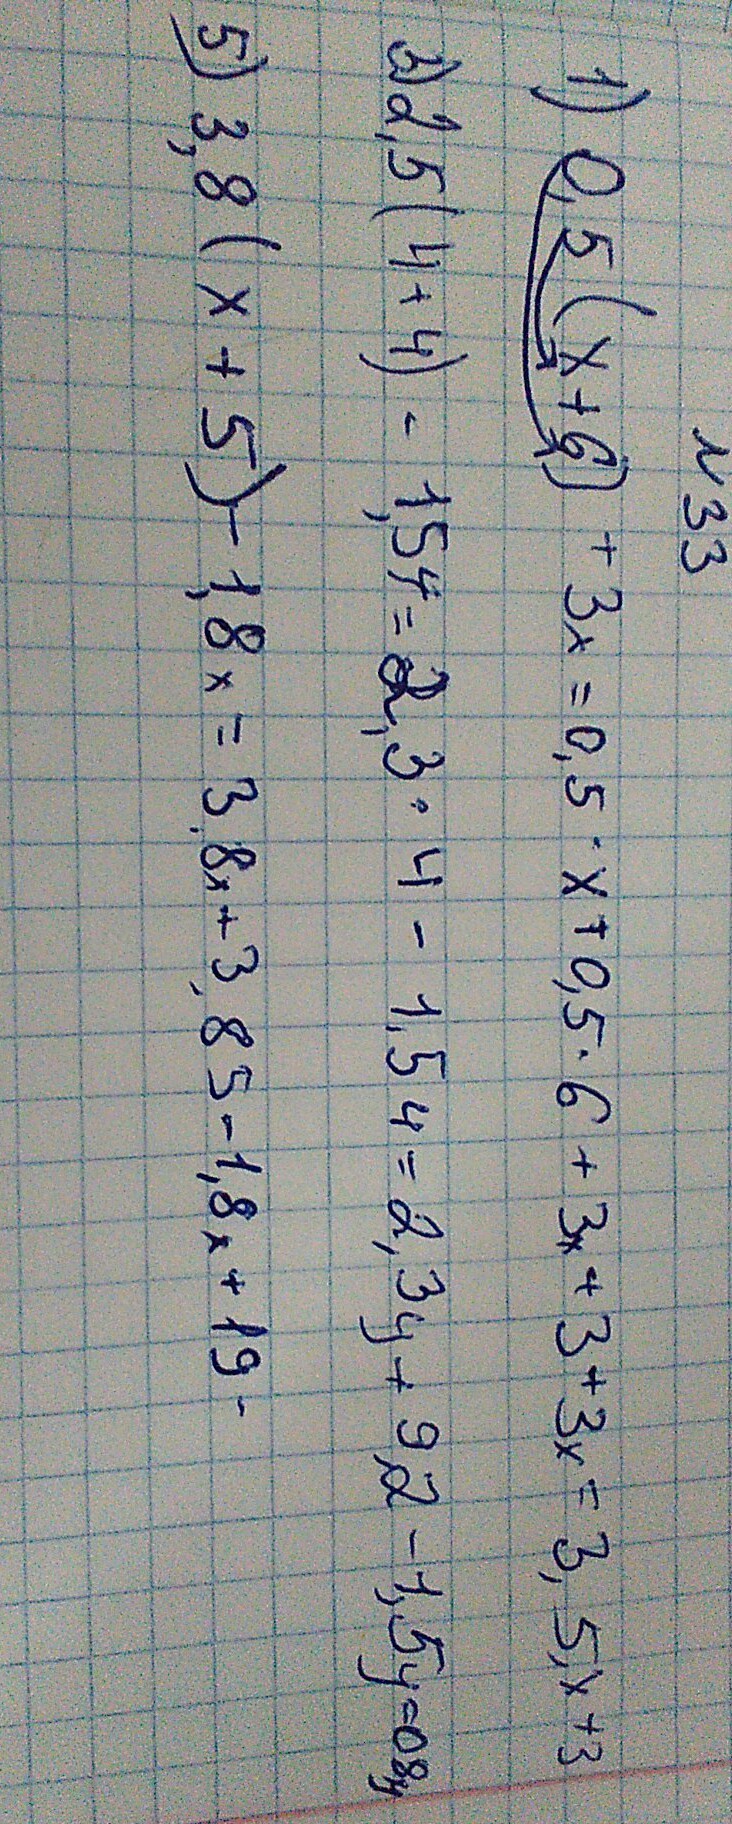 №33
1) 0,5(x+6) + 3x = 0,5·x+0,5·6 + 3x + 3+3x = 3,5x+3
2) 2,5(4+4) - 1,5y = 2,3·4 - 1,54 = 2,3y + 9,2 - 1,5y = 0,8y
5) 3,8(x+5) - 1,8x = 3,8x + 3,85 - 1,8x + 19 -